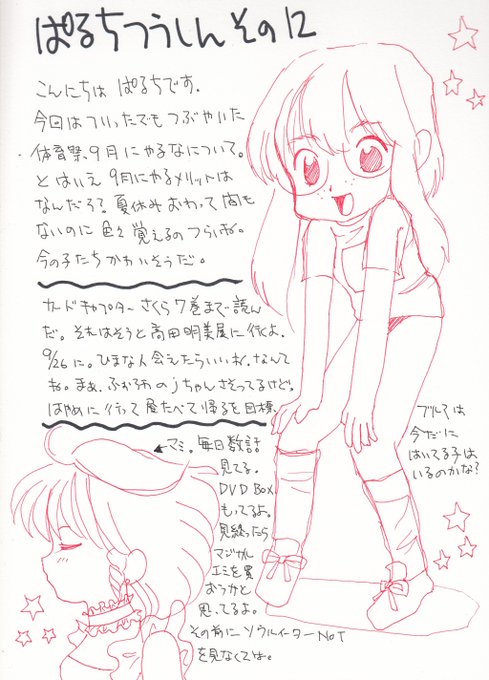 ぱるちつうしん その12
こんにちは ぱるちです.
今回はついったでもつぶやいた
体育祭、9月にやるなについて。
とはいえ 9月にやるメリットは
なんだろ？ 夏休みおわって間も
ないのに 色々覚えるのつらいね。
今の子たち かわいそうだ。
カードキャプターさくら 7巻まで読ん
だ。それはそうと高田明美展に行くよ.
9/26に。ひまな人会えたらいいね.なんて
ね。まぁ、ふかふわのjちゃんさそってるけど。
はやめに行って昼たべて帰るを目標.
ブルマは
今だに
はいてる子は
いるのかな？
マミ。毎日数話
見てる。
DVD BOX
もってるよ。
見終ったら
マジカル
エミを買
おうかと
思ってるよ。
その前にソウルイーターNOT
を見なくては。